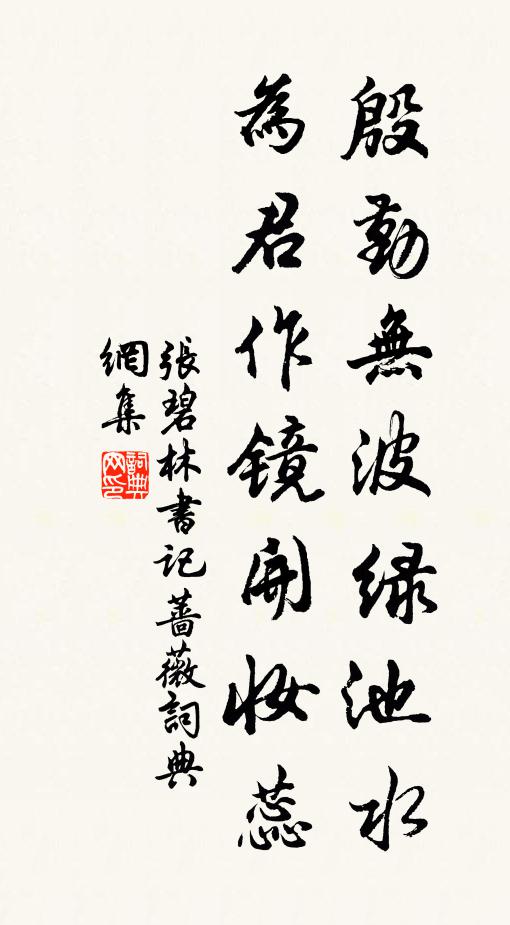 殷勤無波緑池水
為君作鏡開妝蕊
張碧林書記薔薇詞典
網集
詞典网印